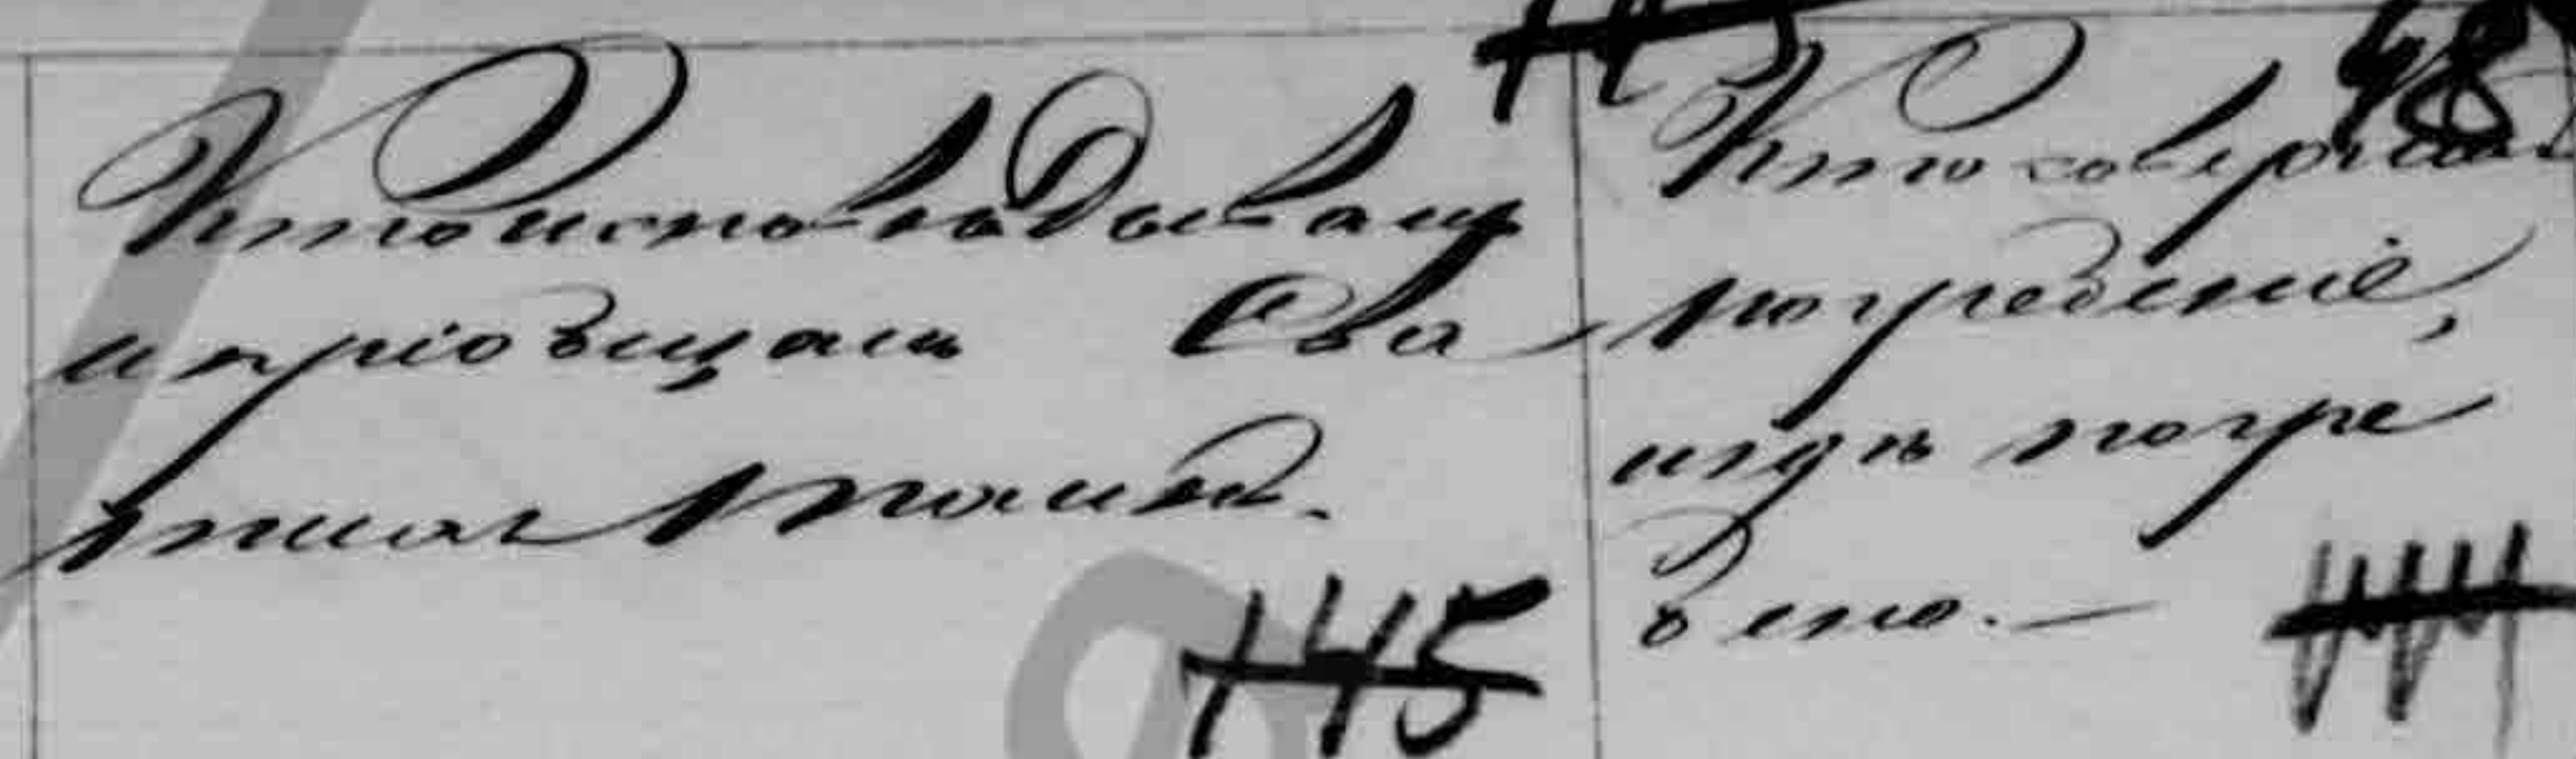 Кто исповѣдывалъ
и пріобщалъ Свя
тыхъ Таинъ.
145
Кто соверша
погребеніе,
и гдѣ погре
бено. —
48